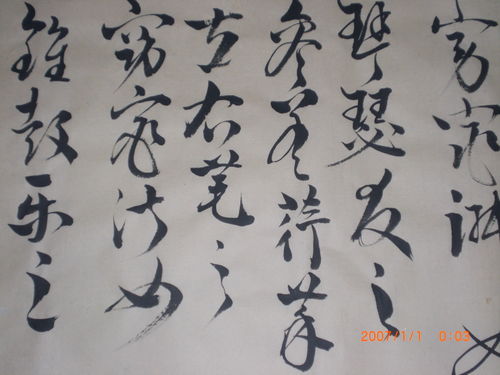 窈窕淑女
琴瑟友之
参差荇菜
左右芼之
窈窕淑女
鍾鼓乐之
2007/1/1 0:03